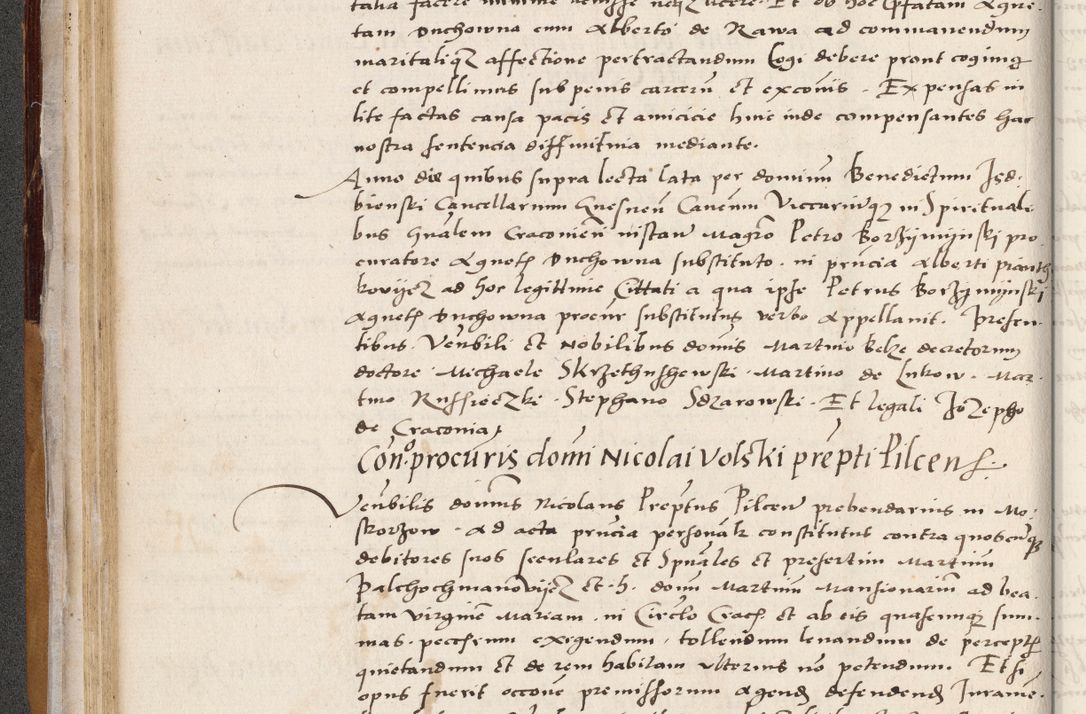 talia facere minime
tam Duchowna cum Alberto de Rawa ad commanendum
maritaliqz affectione pertractandum Cogi debere prout cogimq
et compellimus sub penis carcerũ et excoĩs . Expensas in
lite factas causa pacis Et amicicie hinc inde compensantes hac
nostra sentencia diffinitiva mediante.
Anno die quibus supra lecta lata per dominũ Benedictum Izd-
bienski Cancellarium Gnesneñ Canonicum Viccariũqz in Spirituali-
bus Gñalem Cracovieñ instañ Magr̃o Petro Borzymijnski pro-
curatore Agneth Duchowna substituto . in pñcia Alberti
ad hoc legittime Cittati a qua ipse Petrus Borzymijnski
Agneth Duchowna procur substitutus verbo Appellavit . Presen-
tibus . Veñbili Et Nobilibus dominis Martino Belze decretorum
doctore . Michaele Skrzethushewski . Martino de Lukow . Mar-
tino Russieczki . Stephano Sdzarowski . Et legali Jozepho
de Craconia
Con̊ procuris domi Nicolai Volski prepti Pilcen
Veñbilis dominus Nicolaus Preptus Pilceñ prebendarius in Mo-
skorzow . ad acta pñcia personalr constitutus contra quoscũqz
debitores suos seculares Et Spũales Et presertim Martinũ
Et h. domi Martinũ Mansionariũ ad bea-
tam virginẽ Mariam . in Circlo Crac. et ab eis quascunqz sum-
mas . pecc̃rum exigendum . tollendum levandum de perceptz
quietandum Et de rem habitam ulterius nõ petendum . Et si
opus fuerit occoñe premissorum agend defendend Iuramẽ-